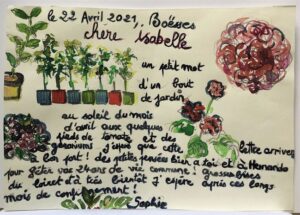 le 22 Avril 2021, Boësses
chère isabelle
un petit mot
d'un bout
de jardin
au soleil du mois
d'avril aux quelques
pieds de tomate et de
géraniums j'espère que cette lettre arrivera
à bon port ! des petites pensées bien à toi et à Hernando
pour fêter vos 2 ans de vie commune ! Grosses bises
du loiret et à très bientôt j'espère après ces longs
mois de confinement !
Sophie